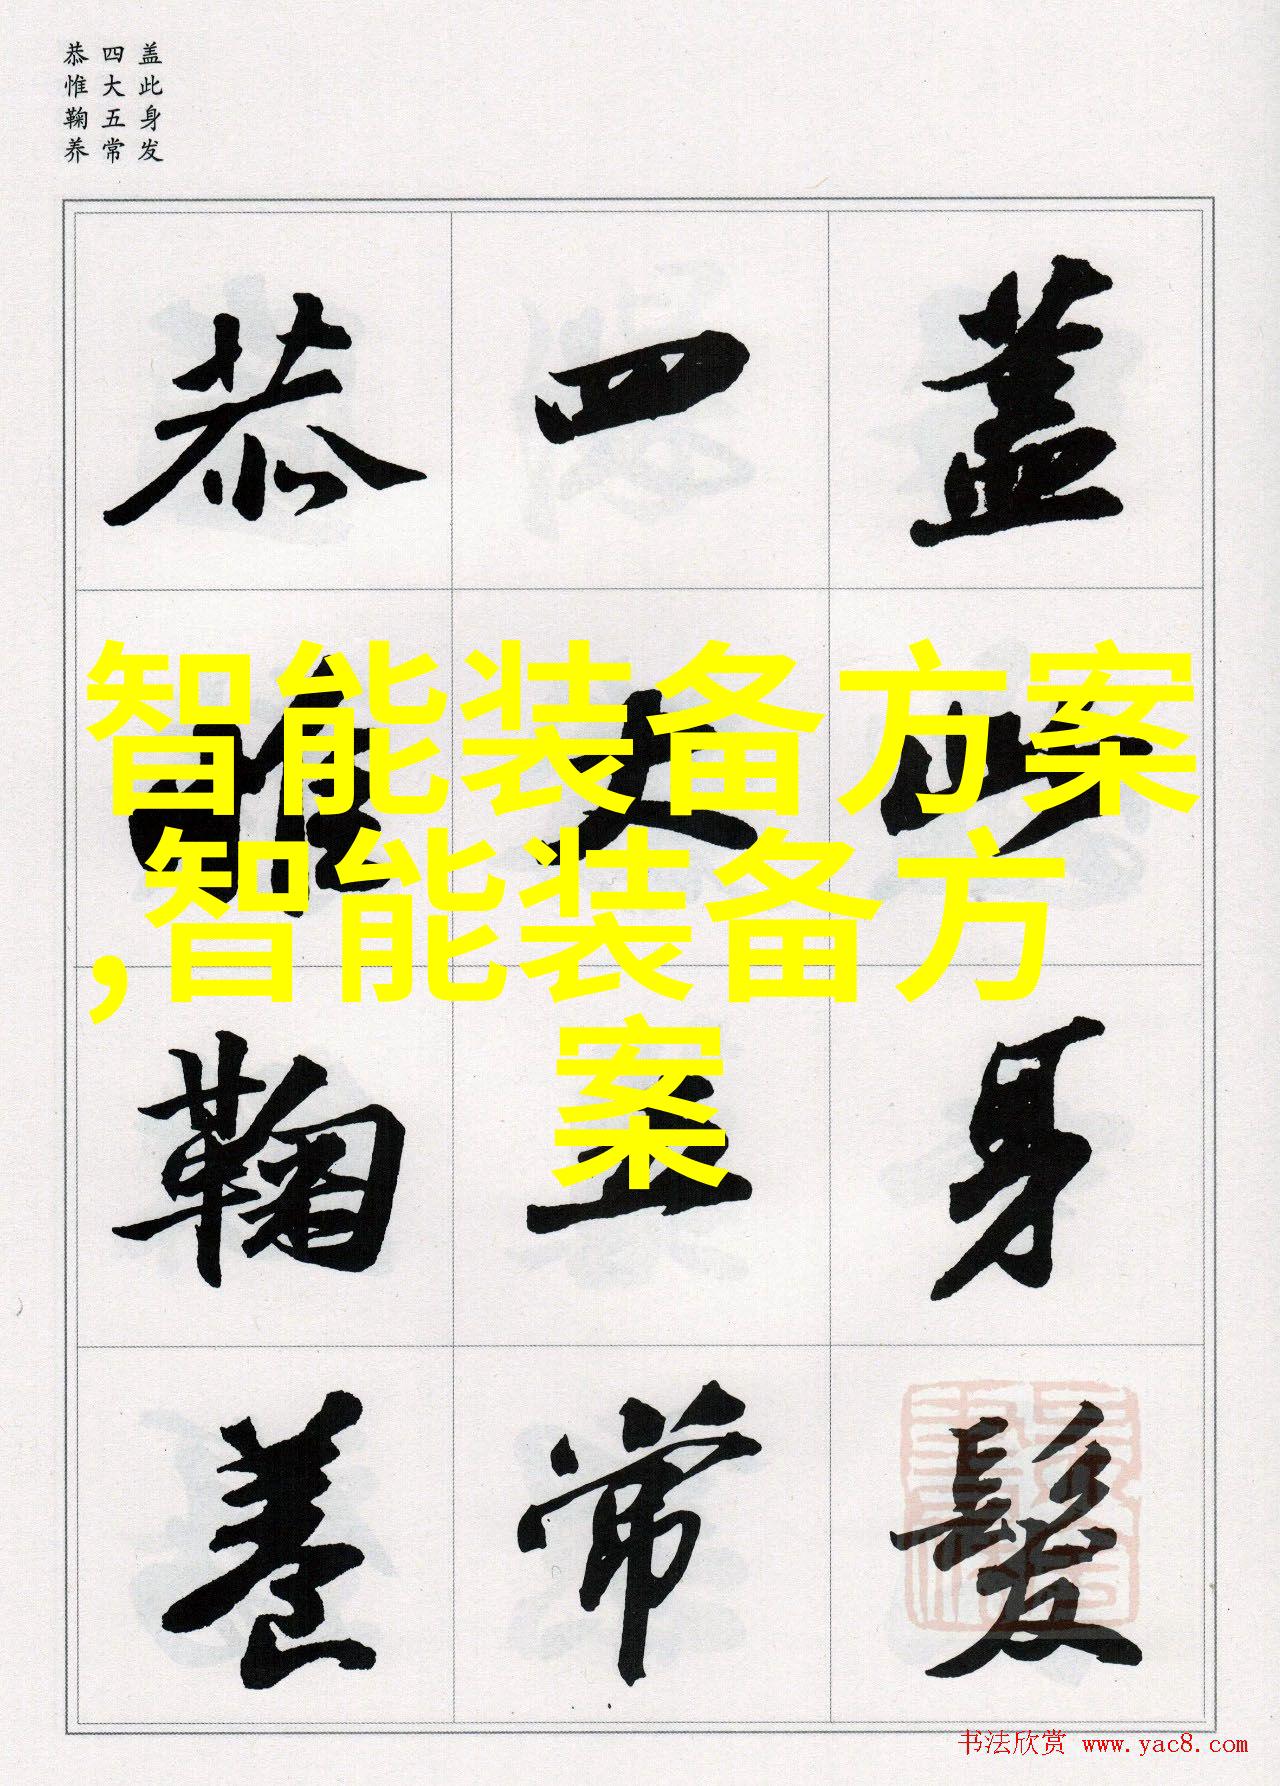 盖此身发
四大五常
恭惟鞠养
蓋此身髮
四大五常
恭惟鞠養
智能装备方案
,智能装备方
案
书法欣赏 www.yac8.com